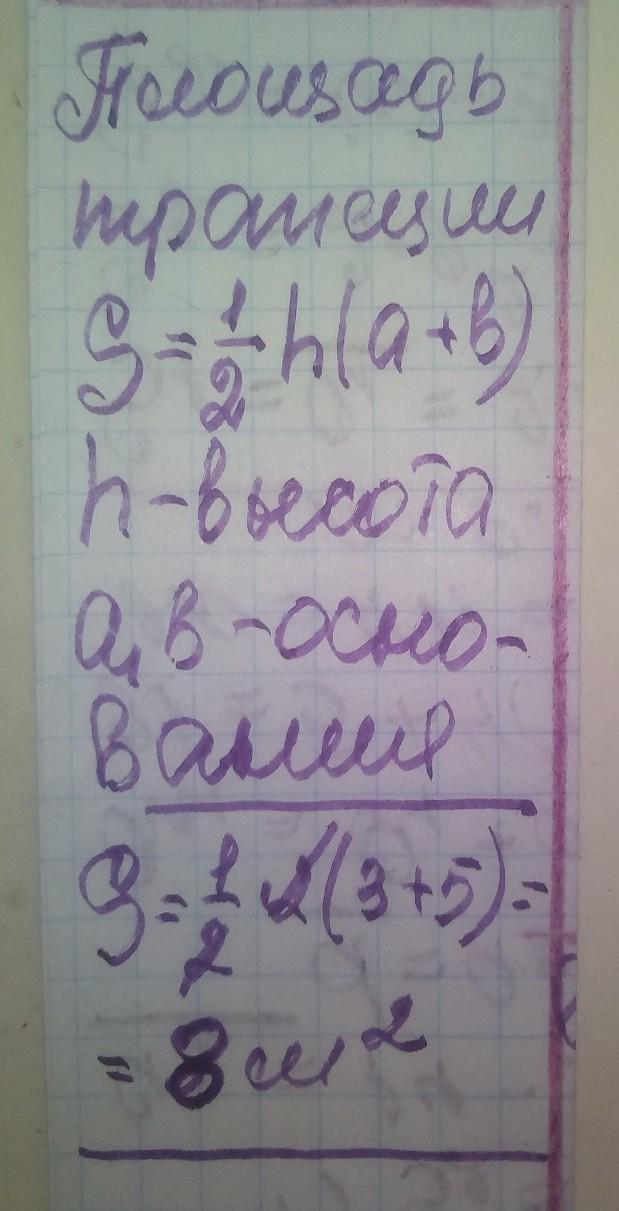 Площадь
трапеции
S = 1/2 h(a+в)
h - высота
a, в - осно-
вания
S = 1/2 2(3+5) =
= 8 см²